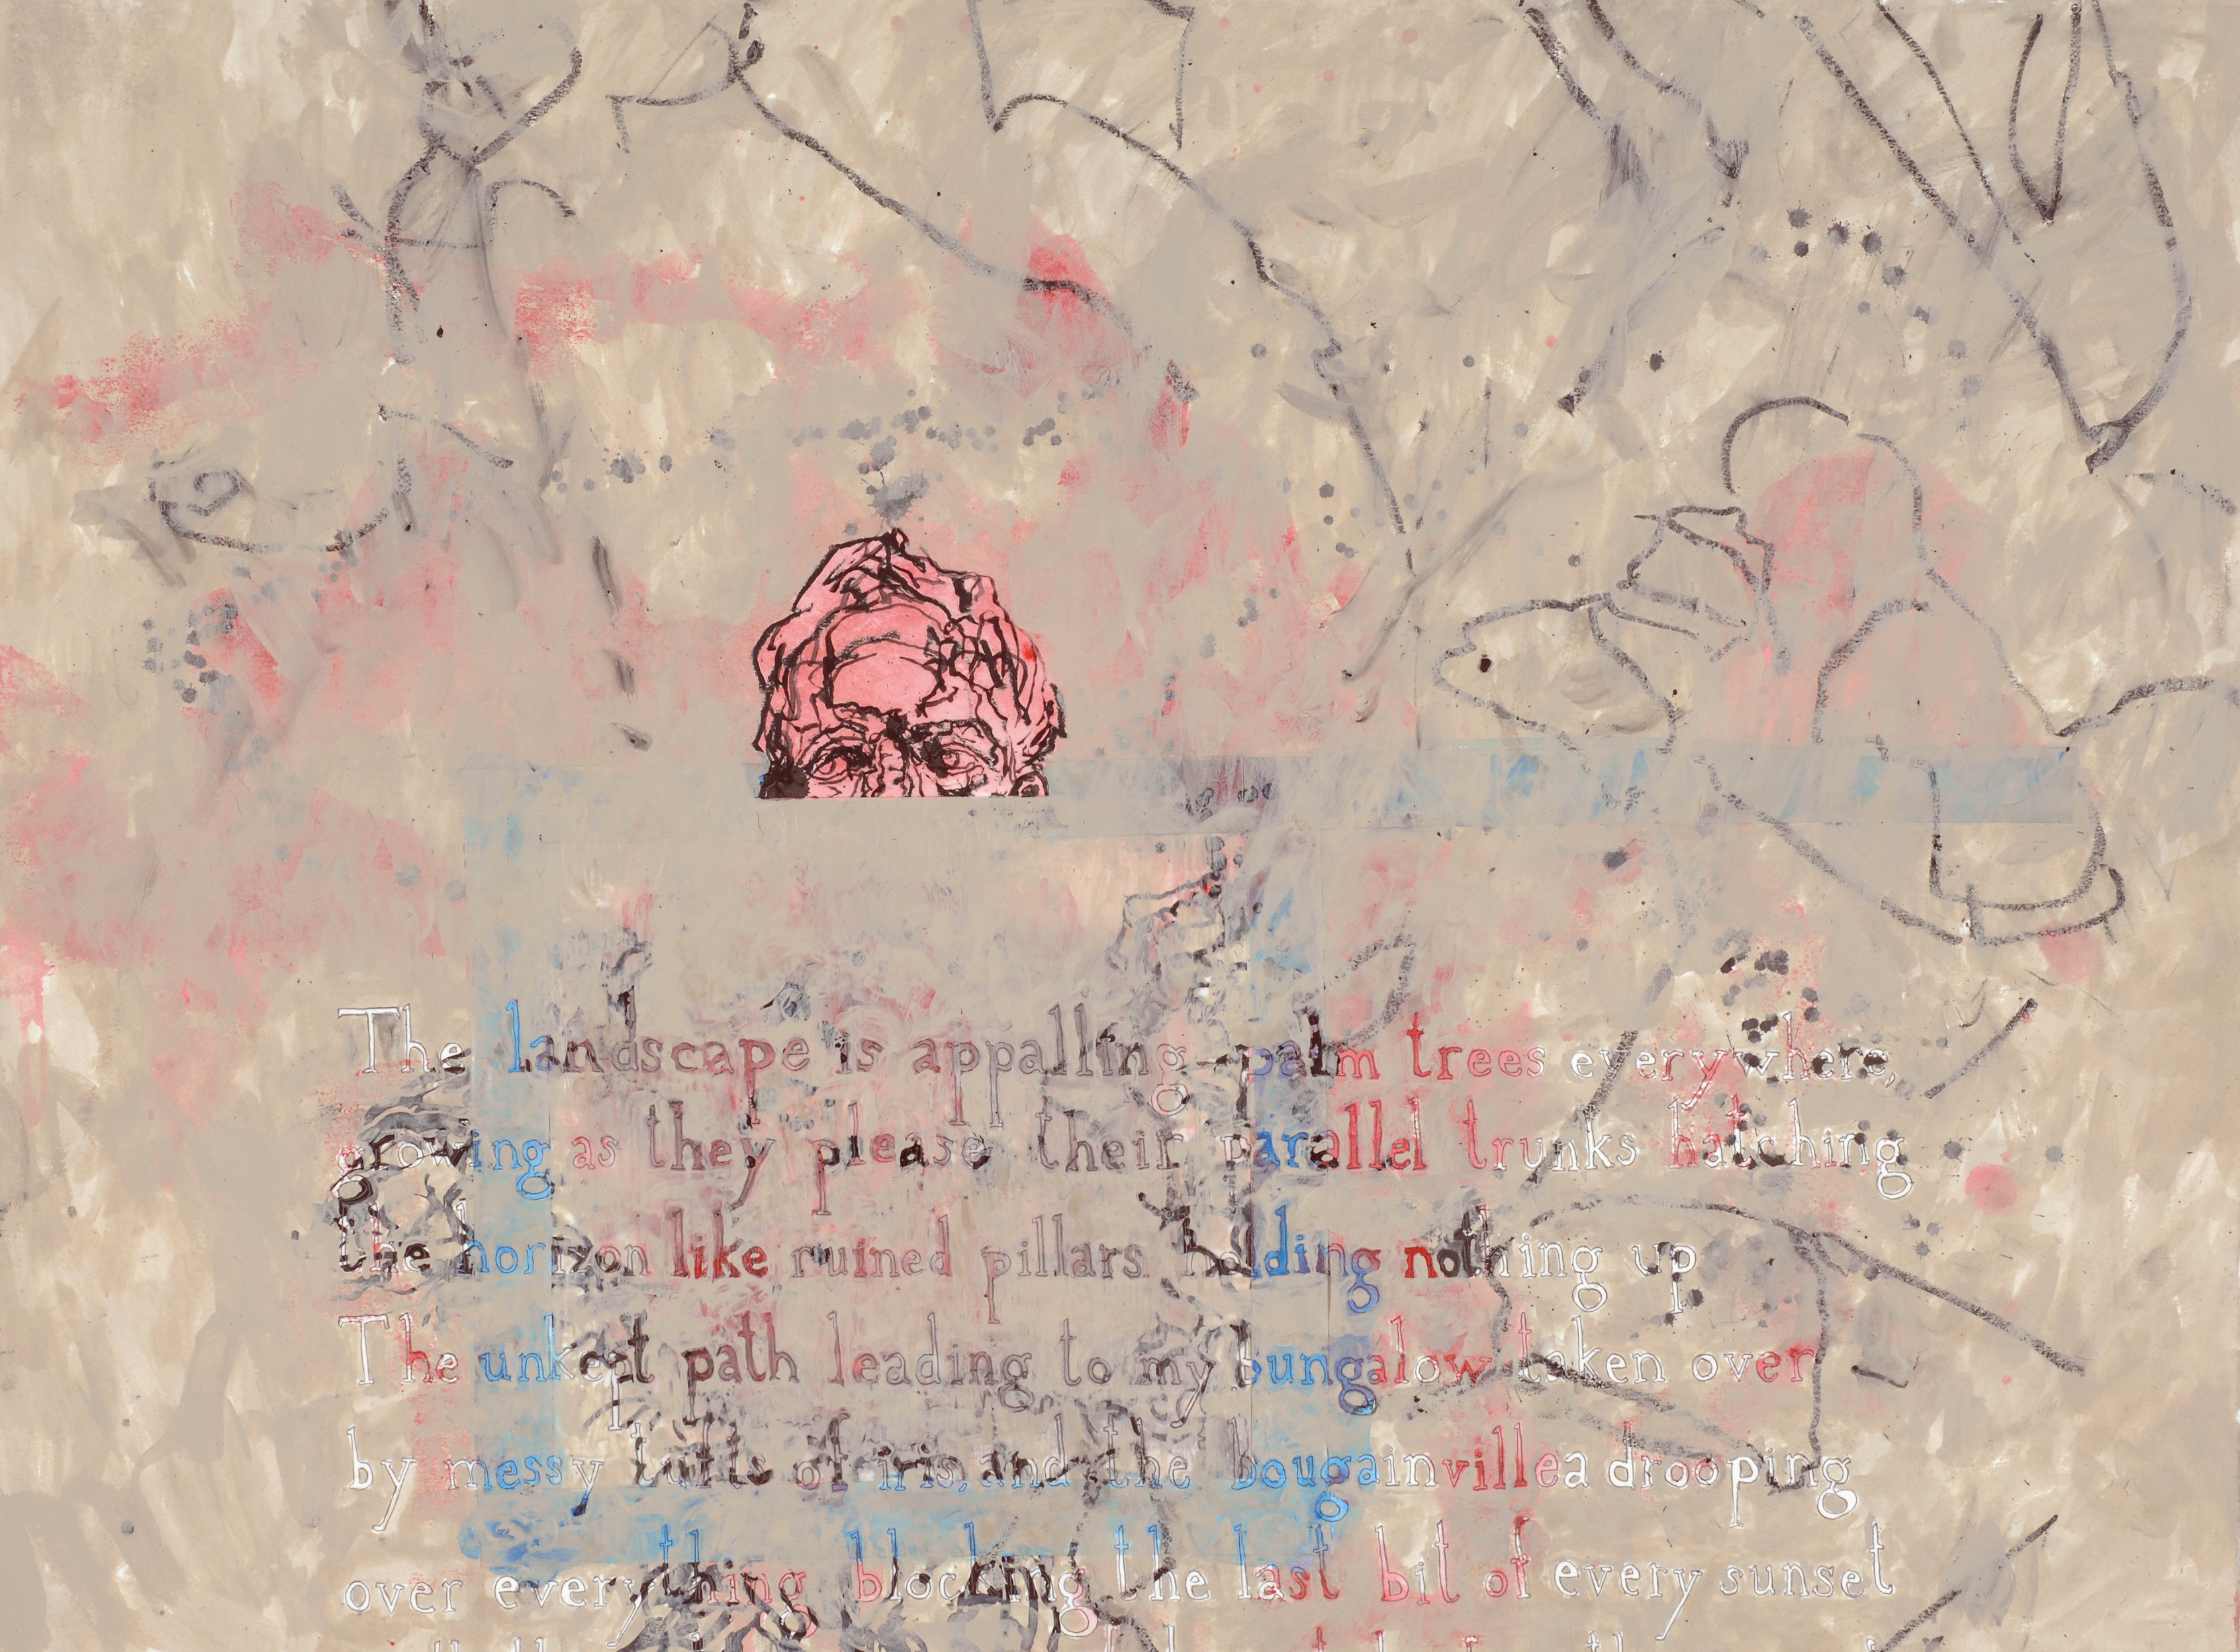 The landscape is appalling—palm trees everywhere,
growing as they please their parallel trunks hatching
the horizon like ruined pillars holding nothing up
The unkept path leading to my bungalow taken over
by messy tufts of iris, and the bougainvillea drooping
over everything blocking the last bit of every sunset